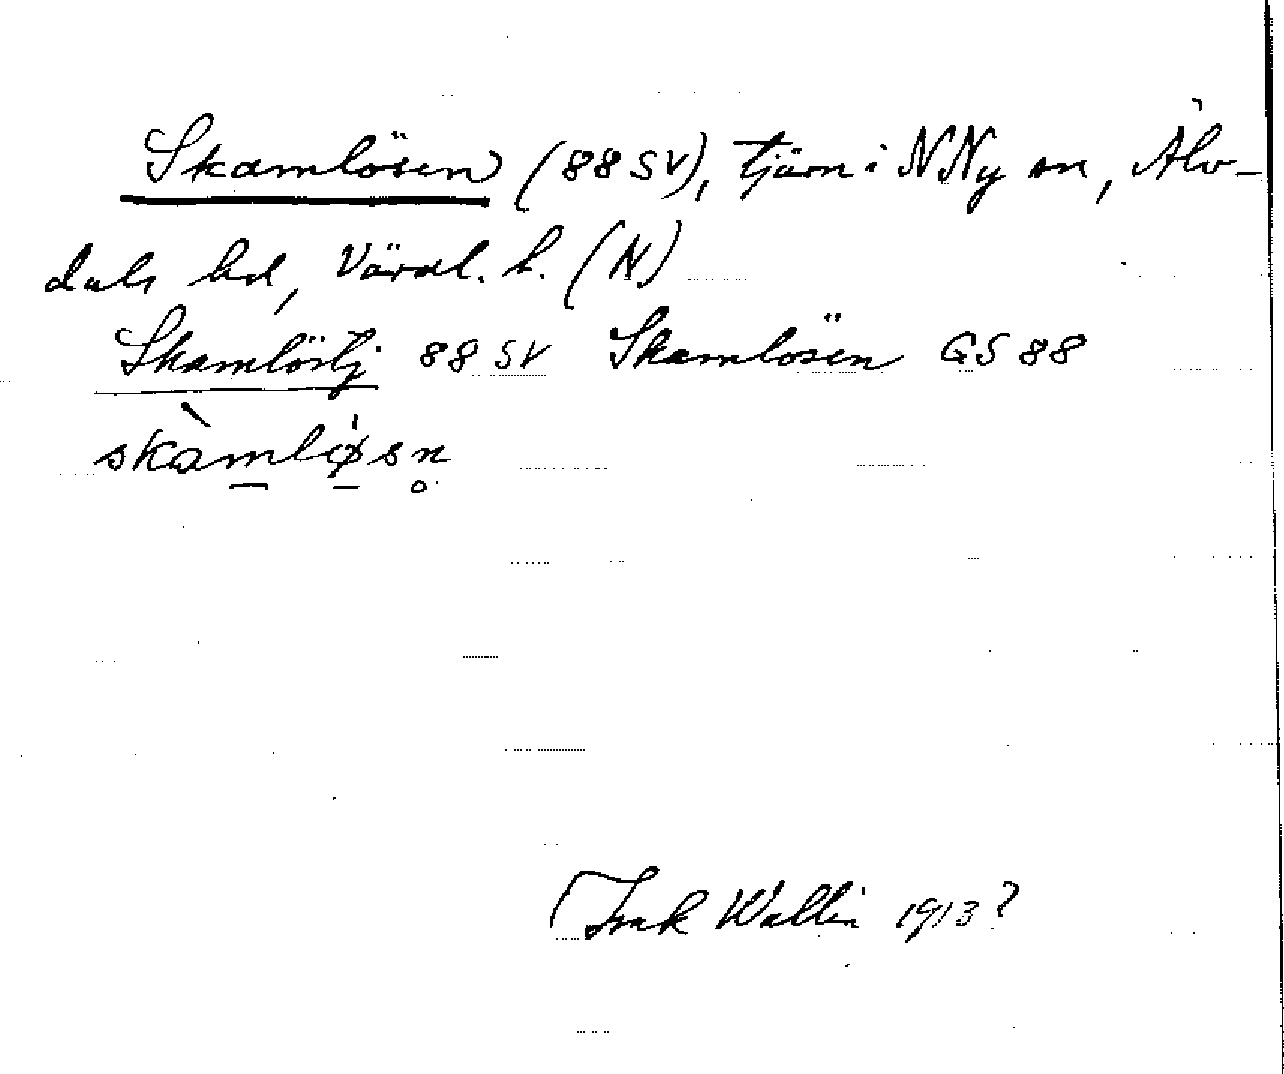 Skamlösen (88 SV), tjärn i N Ny sn, Älv-
dals hd, Värml. l. (N)
Skamlöstj 88 SV Skamlösen GS 88
skàmlø̀sn̥
Isak Wallin 1913?